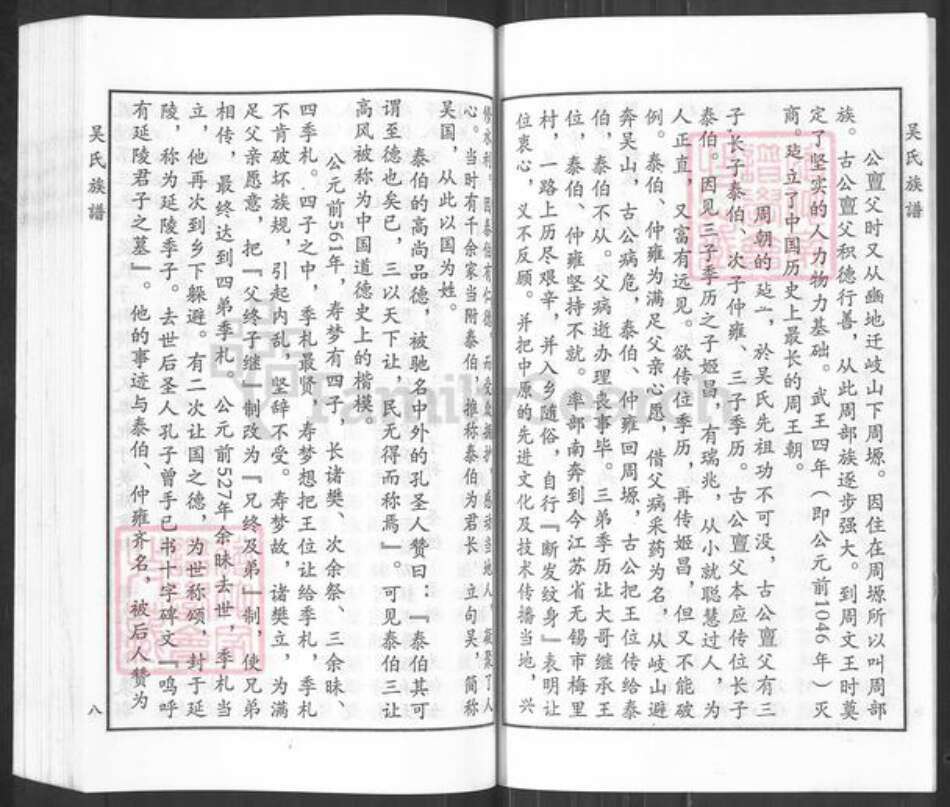 吴氏族譜
公亶父时又从豳地迁岐山下周塬。因住在周塬所以叫周部
族。古公亶父积德行善，从此周部族逐步强大。到周文王时奠
定了坚实的人力物力基础。武王四年（即公元前1046年）灭
商。建立了中国历史上最长的周王朝。
周朝的建立，於吴氏先祖功不可没，古公亶父有三
子，长子泰伯、次子仲雍、三子季历。古公亶父本应传位长子
泰伯。因见三子季历之子姬昌，有瑞兆，从小就聪慧过人，为
人正直，又富有远见。欲传位季历，再传姬昌，但又不能破
例。泰伯、仲雍为满足父亲心愿，借父病采药为名，从岐山避
奔吴山，古公病危，泰伯、仲雍回周塬，古公把王位传给泰
伯，泰伯不从。父病逝办理丧事毕。三弟季历让大哥继承王
位，泰伯、仲雍坚持不就。率部南奔到今江苏省无锡市梅里
村，一路上历尽艰辛，并入乡随俗，自行『断发纹身』表明让
位衷心，义不反顾。并把中原的先进文化及技术传播当地，兴
修水利。因泰伯有仁德，
心。当时有千余家当附泰伯，推称泰伯为君长，立句吴，简称
吴国，从此以国为姓。
泰伯的高尚品德，被驰名中外的孔圣人赞曰：『泰伯其可
谓至德也矣已，三以天下让，民无得而称焉』。可见泰伯三让
高风被称为中国道德史上的楷模。
公元前561年，寿梦有四子，长诸樊、次余祭、三余昧、
四季札。四子之中，季札最贤，寿梦想把王位让给季札，季札
不肯破坏族规，引起内乱，坚辞不受。寿梦故，诸樊立，为满
足父亲愿意，把『父终子继』制改为『兄终及弟』制，使兄弟
相传，最终达到四弟季札。公元前527年余昧去世，季札当
立，他再次到乡下躲避。有二次让国之德，为世称颂，封于延
陵，称为延陵季子。去世后圣人孔子曾手已书十字碑文『呜呼
有延陵君子之墓』。他的事迹与泰伯、仲雍齐名，被后人赞为
吴氏族譜
八
FamilySearch